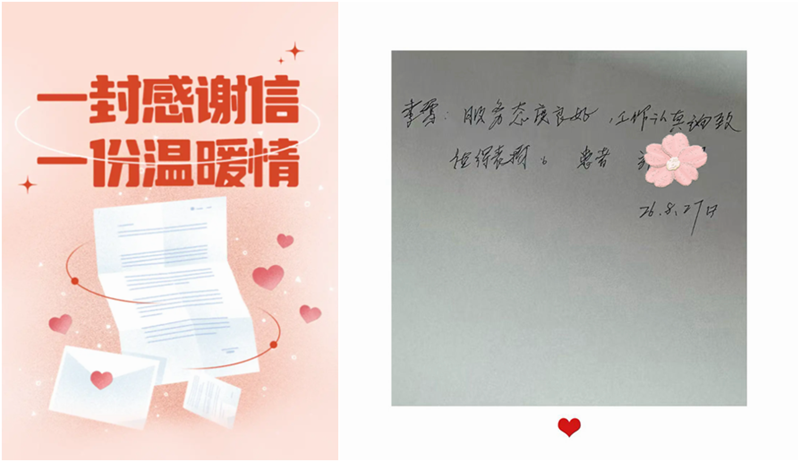 一封感谢信
一份温暖情
服务态度良好，工作认真细致
值得表彰。 患者
26.8.27日